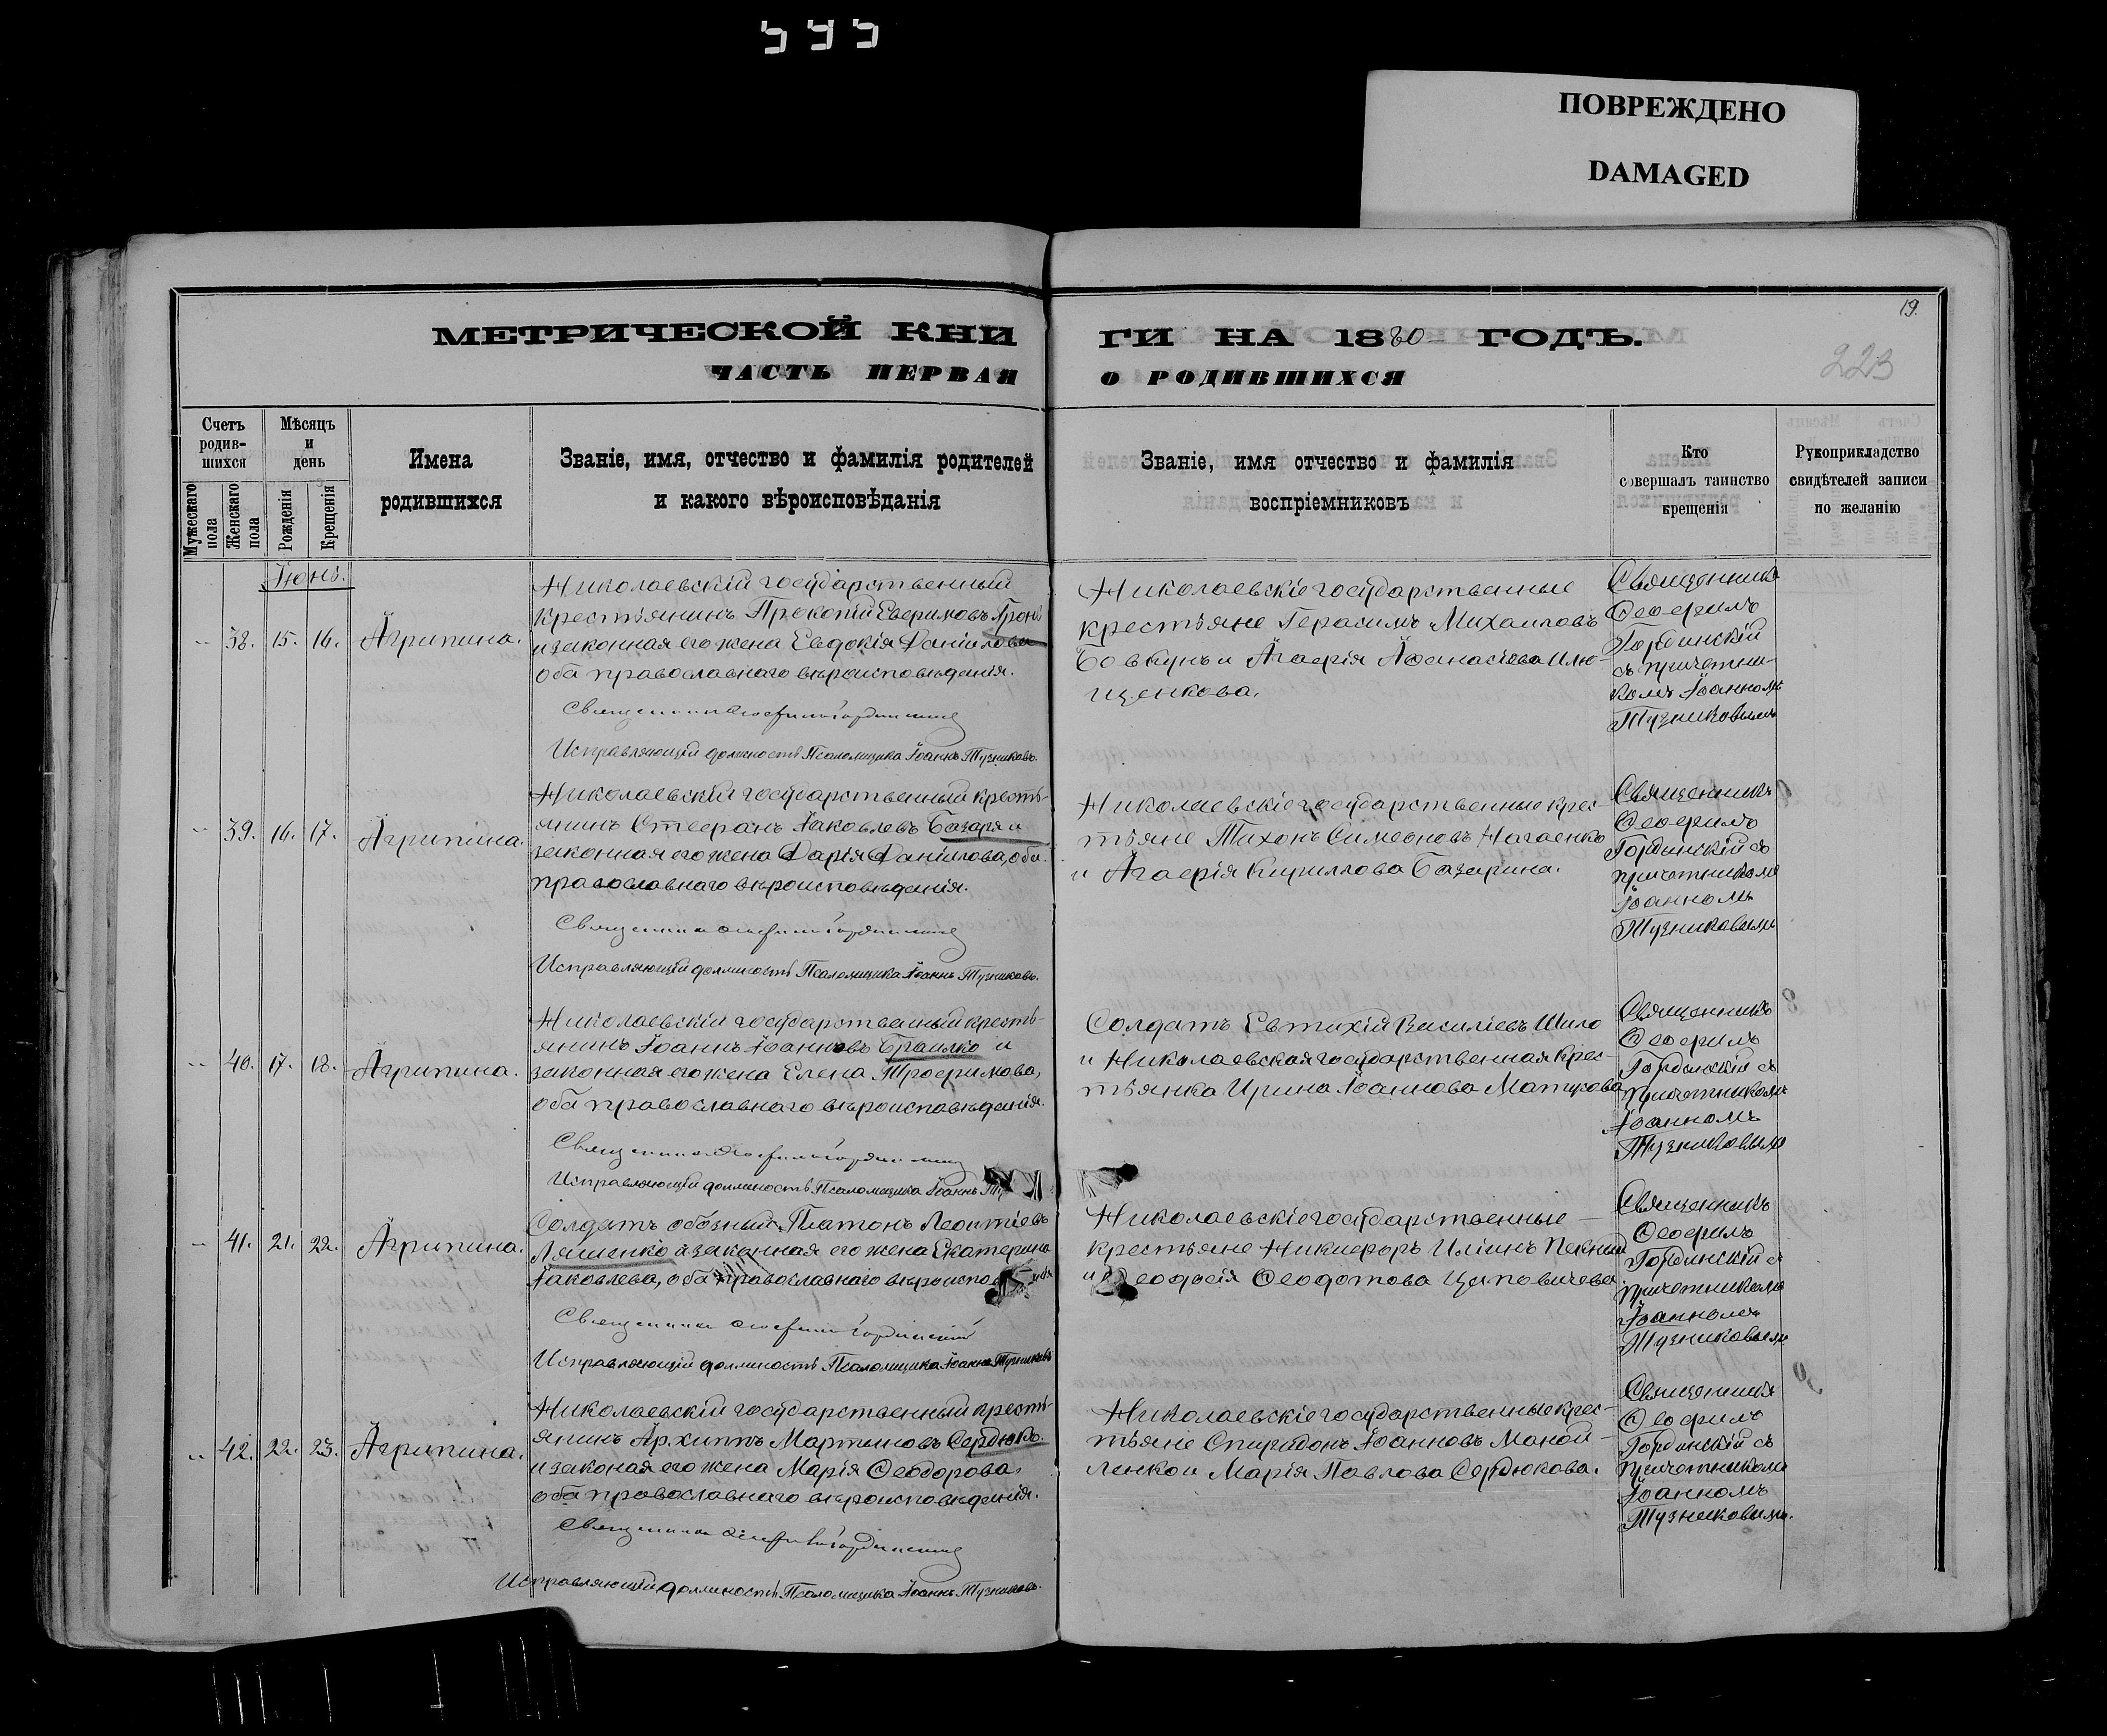 ПОВРЕЖДЕНО
DAMAGED
19.
223
МЕТРИЧЕСКОЙ КНИ ГИ НА 1880 ГОДЪ.
ЧАСТЬ ПЕРВАЯ О РОДИВШИХСЯ
Счетъ родив-шихся
Мужескаго пола
Женскаго пола
Мѣсяцъ и день
Рожденія
Крещенія
Имена родившихся
Званіе, имя, отчество и фамилія родителей
и какого вѣроисповѣданія
Званіе, имя отчество и фамилія
воспріемниковъ
Кто
совершалъ таинство
крещенія
Рукоприкладство
свидѣтелей записи
по желанію
Іюнь.
38. 15. 16. Агрипина.
Николаевскій государственный
крестьянинъ Прокопій Евѳимовъ
и законная его жена Евдокія Даніилова
оба православнаго вѣроисповѣданія.
Исправляющій должность Псаломщика Іоаннъ Тузниковъ.
Николаевскіе государственные
крестьяне Герасимъ Михаиловъ
Бовкунъ и Агаѳія Аѳанасіева Илю-
щенкова.
Священникъ
Ѳеофилъ
Гординскій
съ причетни-
комъ Іоанномъ
Тузниковымъ
39. 16. 17. Агрипина.
Николаевскій государственный кресть-
янинъ Стефанъ Іаковлевъ Базаря и
законная его жена Дарія Даніилова, оба
православнаго вѣроисповѣданія.
Исправляющій должность Псаломщика Іоаннъ Тузниковъ.
Николаевскіе государственные крес-
тьяне Тихонъ Симеоновъ Нагаенко
и Агаѳія Кириллова Базарина.
Священникъ
Ѳеофилъ
Гординскій съ
причетникомъ
Іоанномъ
Тузниковымъ
40. 17. 18. Агрипина.
Николаевскій государственный кресть-
янинъ Іоаннъ Іоанновъ Браилко и
законная его жена Елена Трофимова,
оба православнаго вѣроисповѣданія.
Исправляющій должность Псаломщика Іоаннъ
Солдатъ Евтихій Василіевъ Шило
и Николаевская государственная крес-
тьянка Ирина Іоаннова Матухова
Священникъ
Ѳеофилъ
Гординскій съ
причетникомъ
Іоанномъ
Тузниковымъ
41. 21. 22. Агрипина.
Солдатъ обозный Платонъ Леонтіевъ
Ляшенко и законная его жена Екатерина
Іаковлева, оба православнаго
Исправляющій должность Псаломщика Іоаннъ Тузниковъ
Николаевскіе государственные
крестьяне Никифоръ Иліинъ
и Ѳеодосія Ѳеодотова
Священникъ
Ѳеофилъ
Гординскій съ
причетникомъ
Іоанномъ
Тузниковымъ
42. 22. 23. Агрипина.
Николаевскій государственный кресть-
янинъ Архиппъ Мартиновъ Сердюкъ
и законая его жена Марія Ѳеодорова,
оба православнаго вѣроисповѣданія.
Исправляющій должность Псаломщика Іоаннъ Тузниковъ.
Николаевскіе государственные крес-
тьяне Спиридонъ Іоанновъ Маной-
ленко и Марія Павлова Сердюкова.
Священникъ
Ѳеофилъ
Гординскій съ
причетникомъ
Іоанномъ
Тузниковымъ.